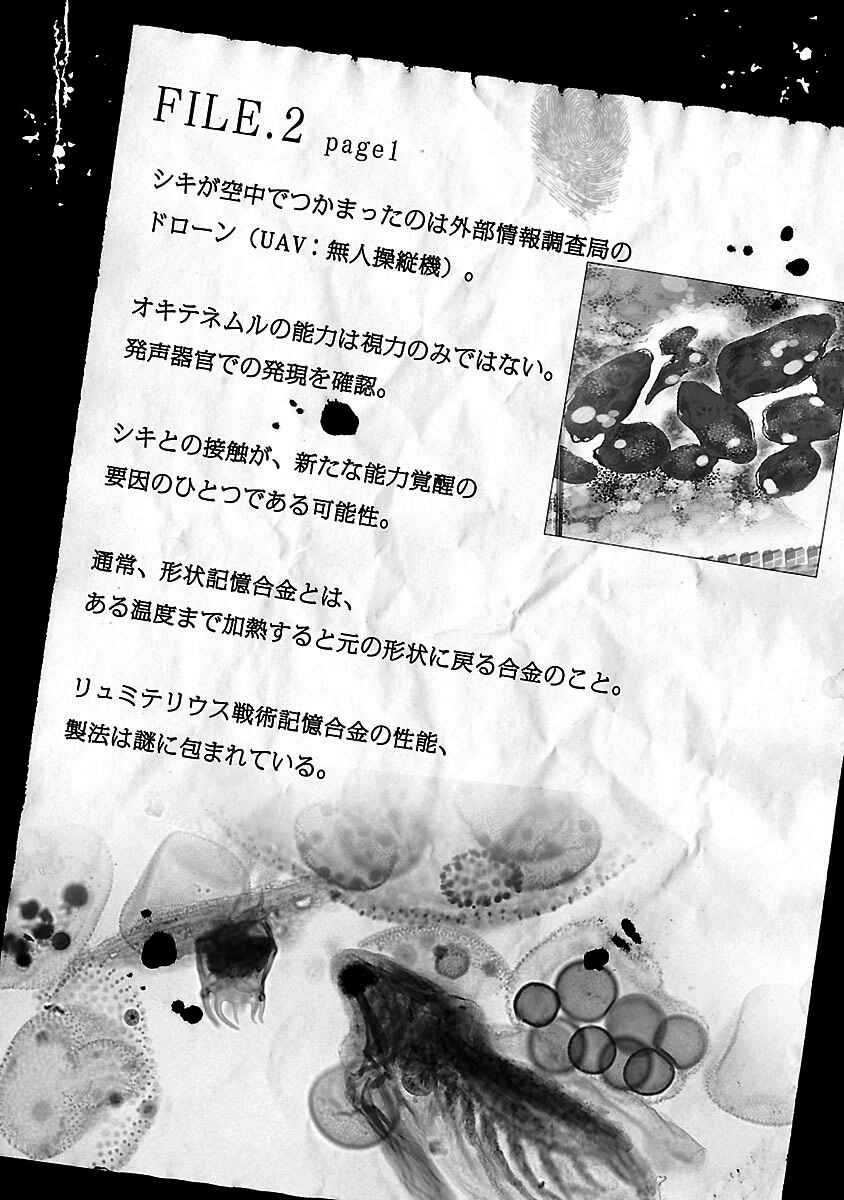 FILE.2 page1
シキが空中でつかまったのは外部情報調査局の
ドローン（UAV：無人操縦機）。
オキテネムルの能力は視力のみではない。
発声器官での発現を確認。
シキとの接触が、新たな能力覚醒の
要因のひとつである可能性。
通常、形状記憶合金とは、
ある温度まで加熱すると元の形状に戻る合金のこと。
リュミテリウス戦術記憶合金の性能、
製法は謎に包まれている。